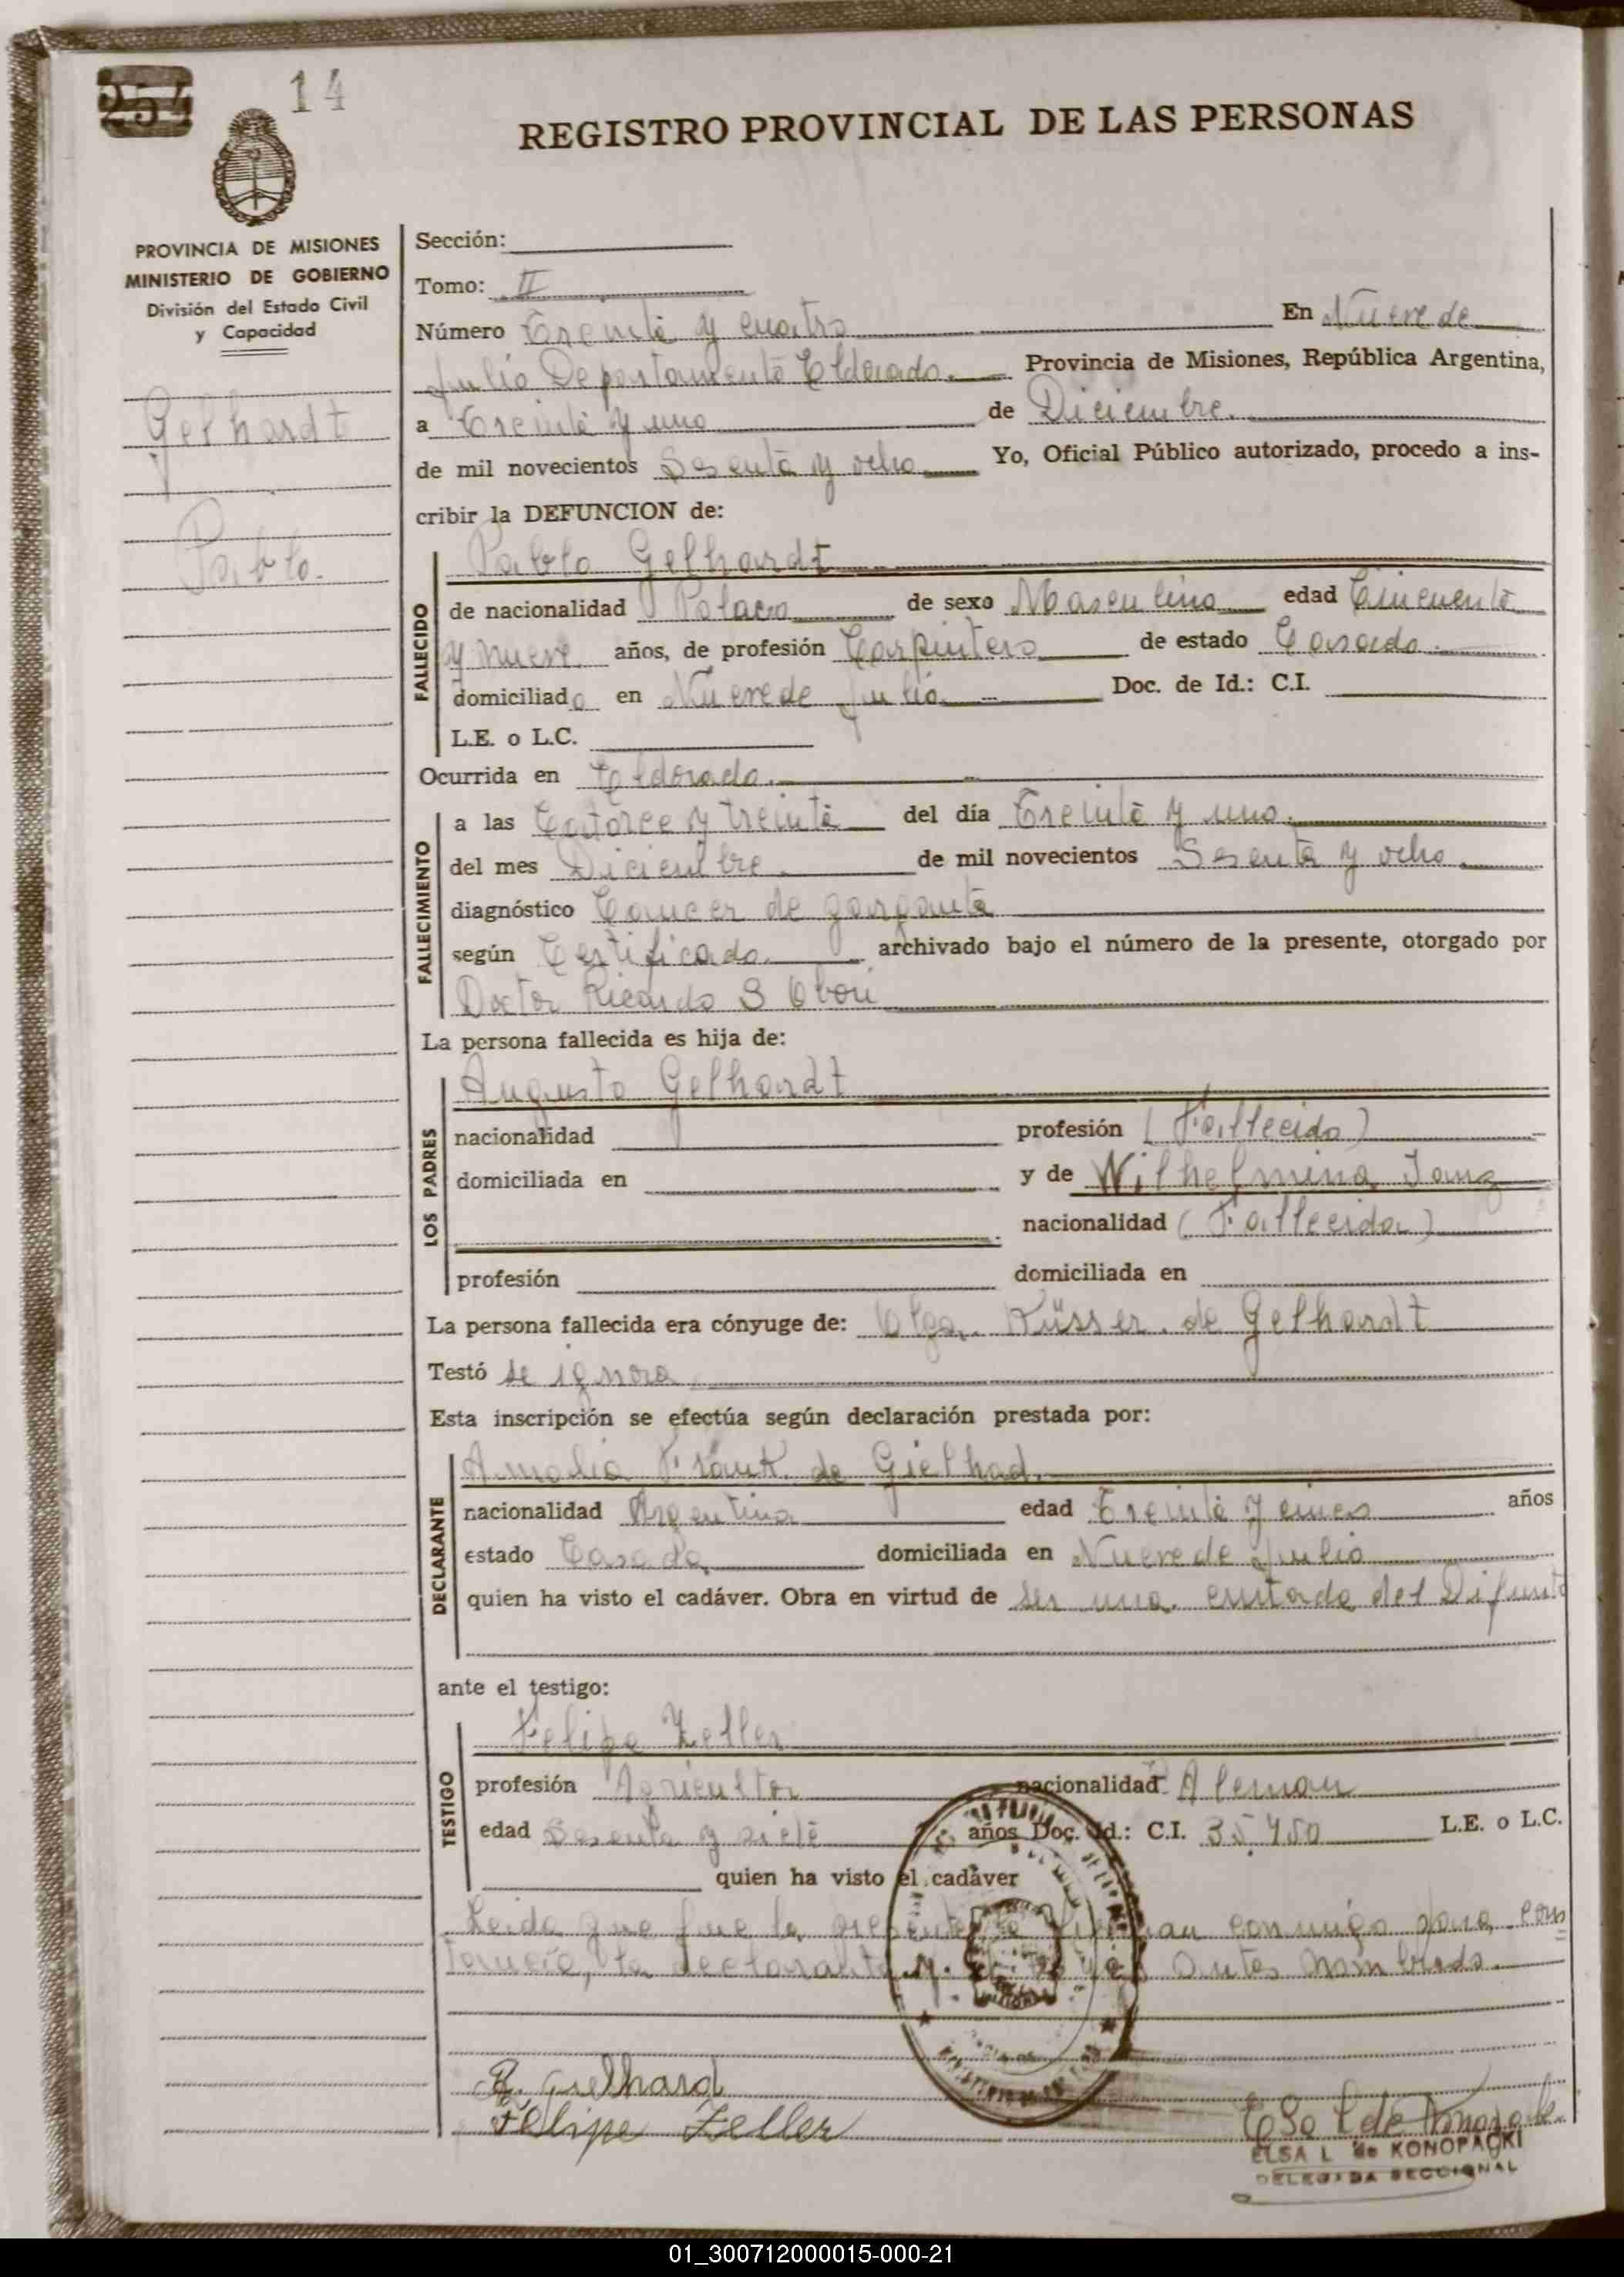 254
14
REGISTRO PROVINCIAL DE LAS PERSONAS
PROVINCIA DE MISIONES
MINISTERIO DE GOBIERNO
División del Estado Civil
y Capacidad
Gelhardt
Pablo.
Sección:
Tomo: II
Número Treinta y cuatro En Nueve de
Julio Departamento Eldorado. Provincia de Misiones, República Argentina,
a Treinta y uno de Diciembre.
de mil novecientos Sesenta y ocho Yo, Oficial Público autorizado, procedo a ins-
cribir la DEFUNCION de:
Pablo Gelhardt
FALLECIDO
de nacionalidad Polaca de sexo Masculino edad Cincuenta
y nueve años, de profesión Carpintero de estado Casado.
domiciliado en Nueve de Julio Doc. de Id.: C.I.
L.E. o L.C.
Ocurrida en Eldorado.
FALLECIMIENTO
a las Catorce y treinta del día Treinta y uno.
del mes Diciembre de mil novecientos Sesenta y ocho.
diagnóstico Cancer de garganta
según Certificado. archivado bajo el número de la presente, otorgado por
Doctor Ricardo S
La persona fallecida es hija de:
LOS PADRES
Augusto Gelhardt
nacionalidad profesión (Fallecido)
domiciliada en y de Wilhelmina
nacionalidad (Fallecida)
profesión domiciliada en
La persona fallecida era cónyuge de: Olga. de Gelhardt
Testó se ignora
Esta inscripción se efectúa según declaración prestada por:
DECLARANTE
Amalia Frank. de Gielhad.
nacionalidad Argentina edad Treinta y cinco años
estado Casada domiciliada en Nueve de Julio
quien ha visto el cadáver. Obra en virtud de ser una cuñada del Difunto
ante el testigo:
TESTIGO
Felipe Zeller
profesión Agricultor nacionalidad Aleman
edad Sesenta y siete años Doc. Id.: C.I. 35.450 L.E. o L.C.
quien ha visto el cadáver
Leida que fue la presente la firman conmigo para cons
tancia, la declarante y antes nombrado.
Gielhard
Felipe Zeller
ELSA L de KONOPACKI
DELEGADA SECCIONAL
01_300712000015-000-21